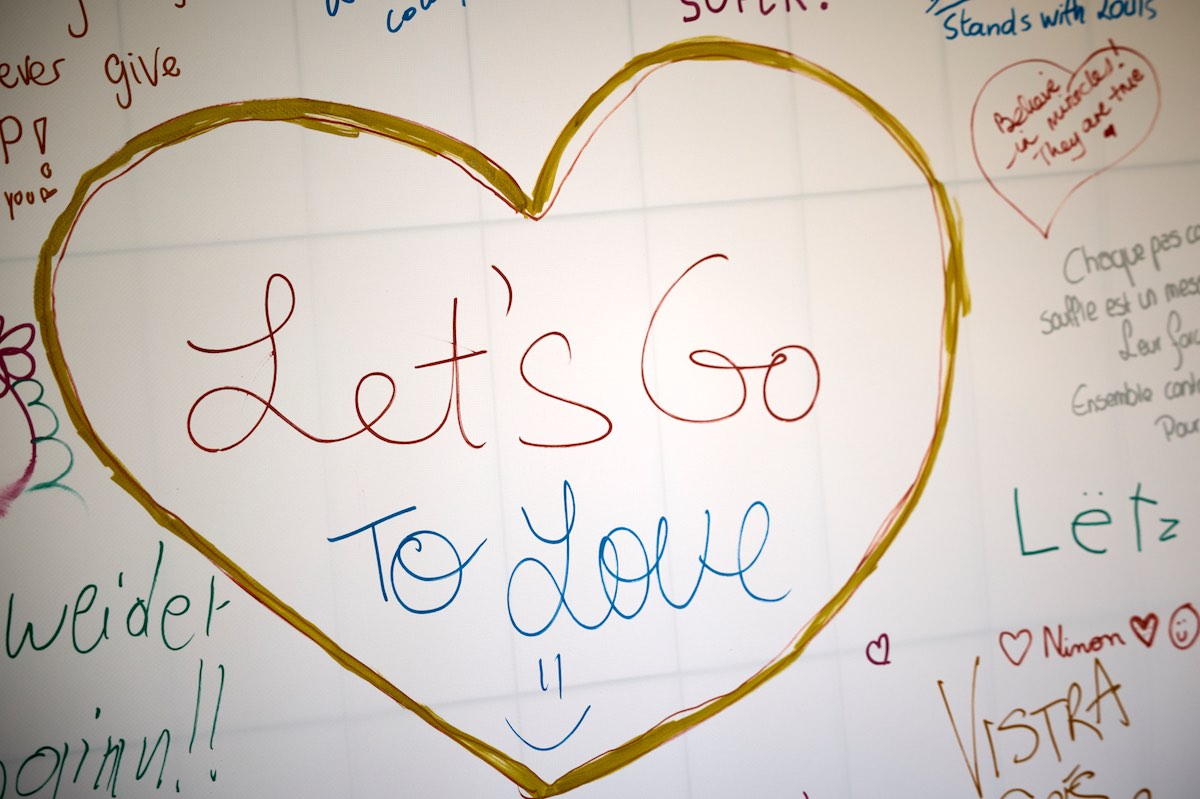 SUPER!
Stands with Louis
ever give
P!
you!
Believe
in miracles!
They are true
Let's Go
To Love
Choque pas
souffle est un mess
Leur forc
Ensemble cont
Pour
Lëtz
weider
Ninon
VISTRA